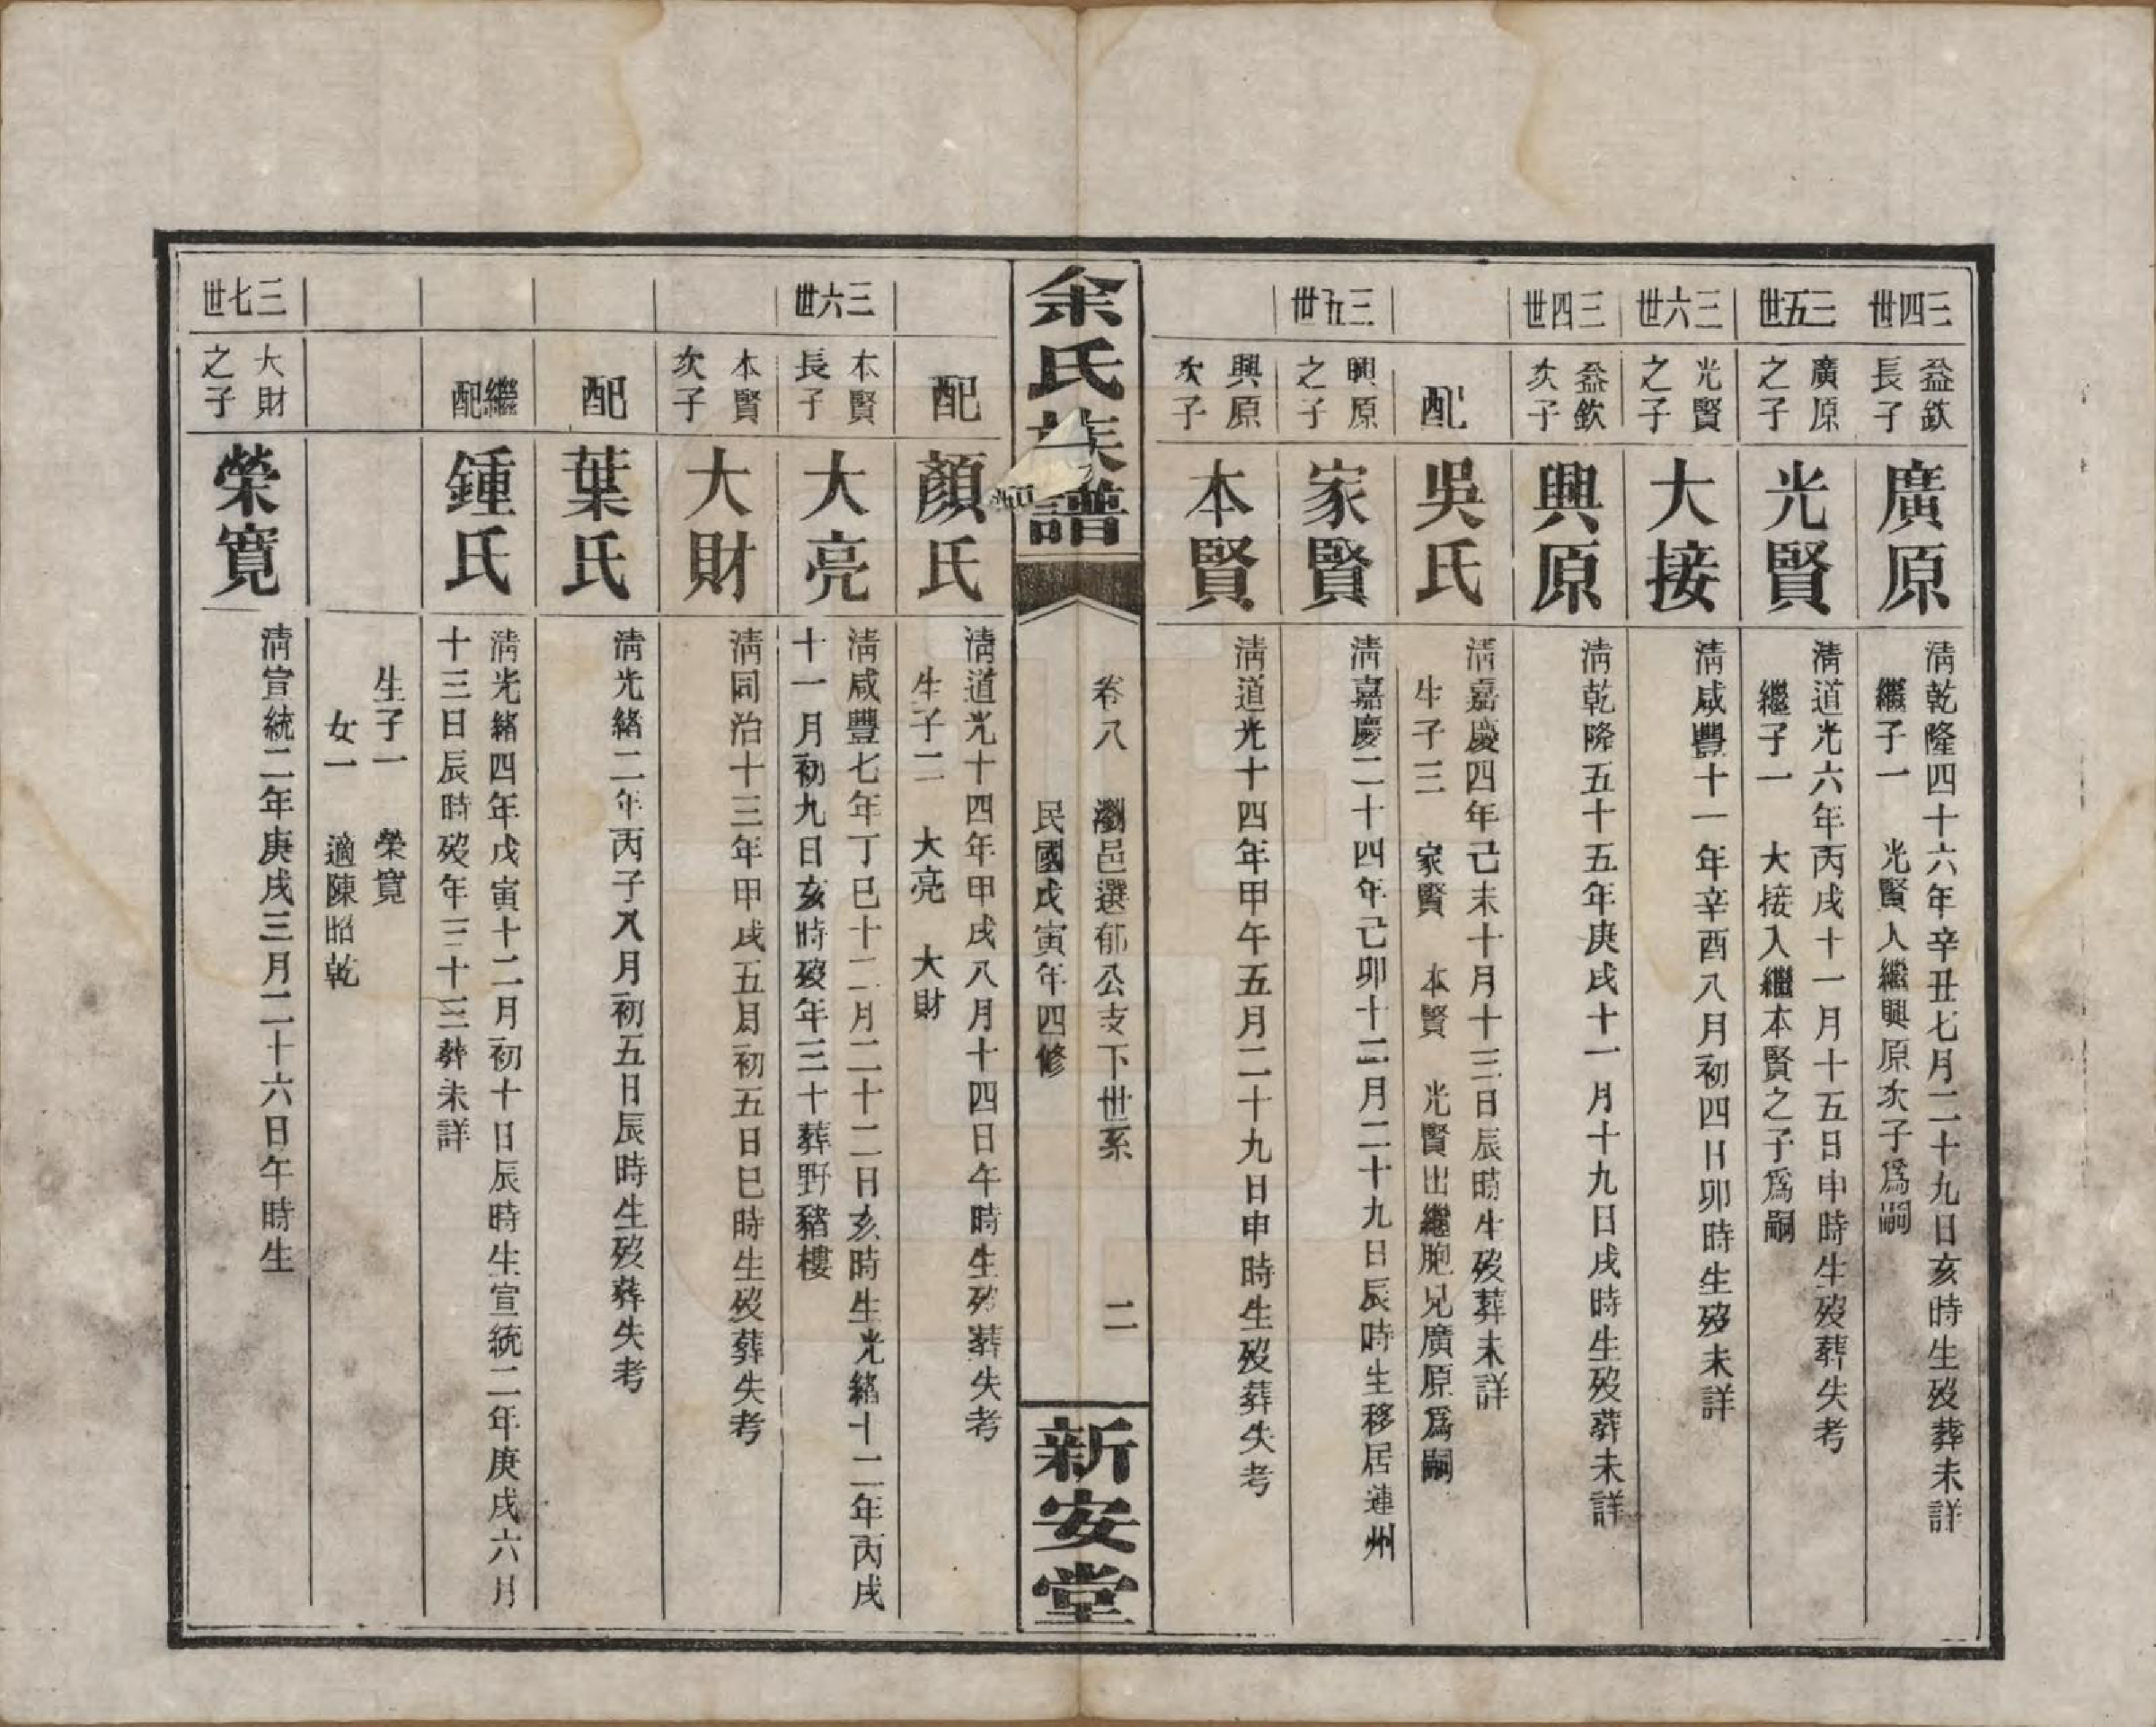 三四世
益欽長子
廣原
淸乾隆四十六年辛丑七月二十九日亥時生歿葬未詳
繼子一　光賢入繼興原次子爲嗣
三五世
廣原之子
光賢
淸道光六年丙戌十一月十五日申時生歿葬失考
繼子一　大接入繼本賢之子爲嗣
三六世
光賢之子
大接
淸咸豐十一年辛酉八月初四日卯時生歿未詳
三四世
益欽次子
興原
淸乾隆五十五年庚戌十一月十九日戌時生歿葬未詳
配
吳氏
淸嘉慶四年己未十月十三日辰時生歿葬未詳
生子三　家賢　本賢　光賢出繼胞兄廣原爲嗣
三五世
興原之子
家賢
淸嘉慶二十四年己卯十二月二十九日辰時生移居連州
興原次子
本賢
淸道光十四年甲午五月二十九日申時生歿葬失考
余氏族譜
卷八　瀏邑選郁公支下世系　二
民國戊寅年四修
新安堂
配
顏氏
淸道光十四年甲戌八月十四日午時生歿葬失考
生子二　大亮　大財
三六世
本賢長子
大亮
淸咸豐七年丁巳十二月二十二日亥時生光緖十二年丙戌
十一月初九日亥時歿年三十葬野豬樓
本賢次子
大財
淸同治十三年甲戌五月初五日巳時生歿葬失考
配
葉氏
淸光緖二年丙子八月初五日辰時生歿葬失考
繼配
鍾氏
淸光緖四年戊寅十二月初十日辰時生宣統二年庚戌六月
十三日辰時歿年三十三葬未詳
生子一　榮寬
女一　適陳昭乾
三七世
大財之子
榮寬
淸宣統二年庚戌三月二十六日午時生